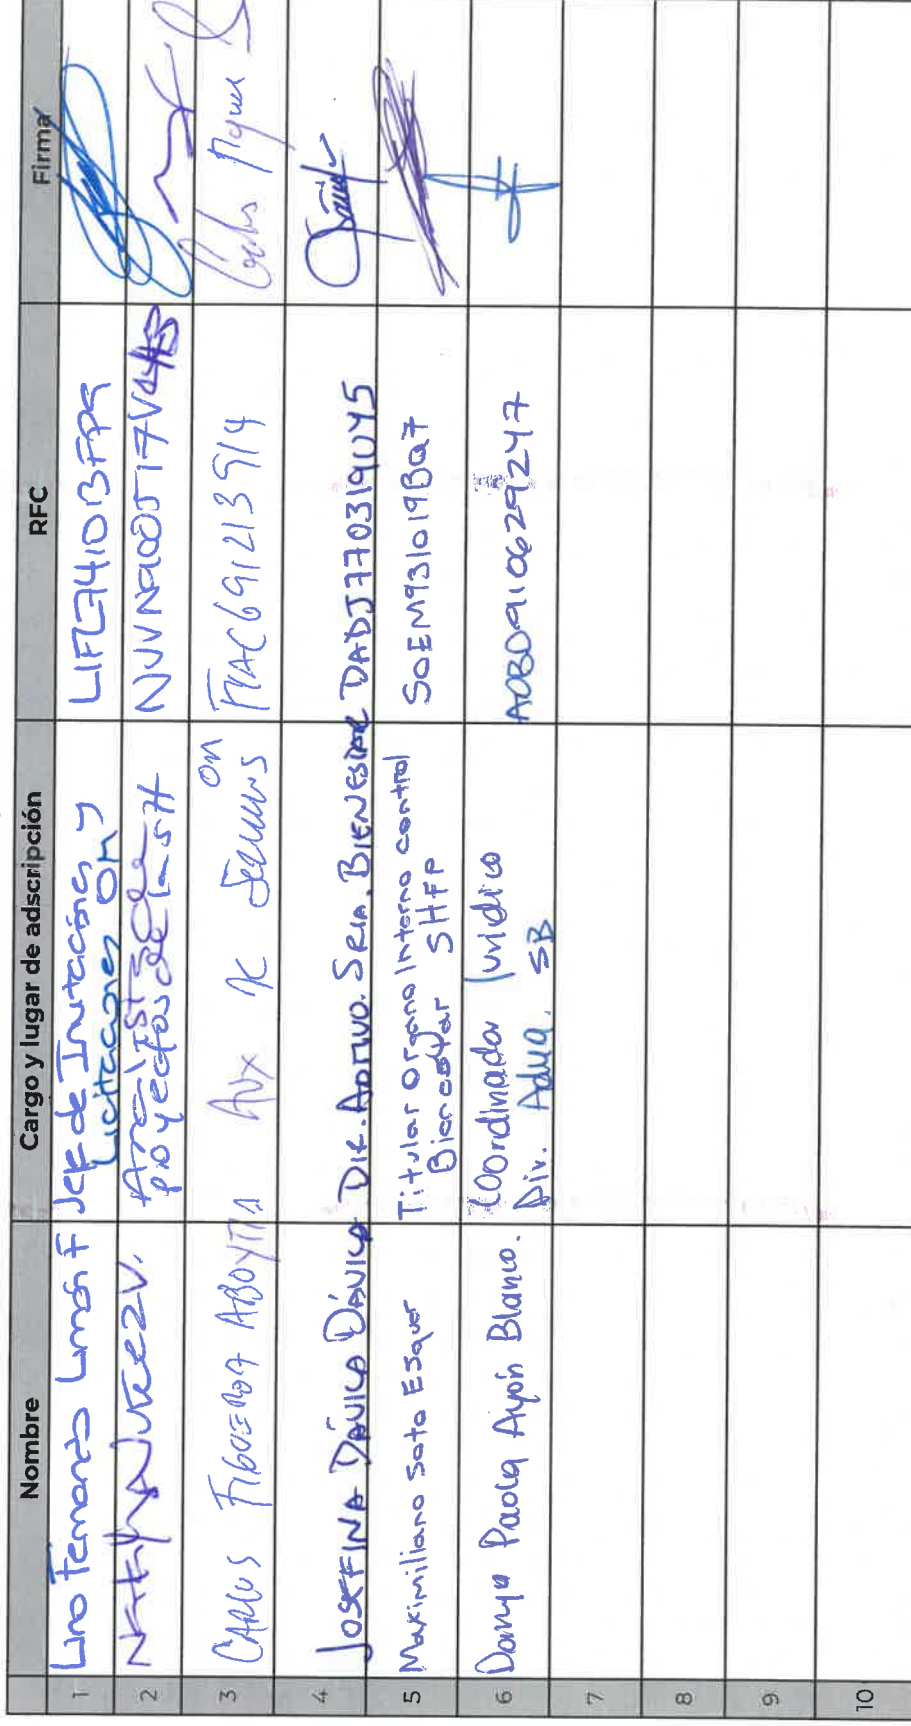 Nombre Cargo y lugar de adscripción RFC Firma
1 Lino Fernando Limón F Jefe de Invitaciones y Licitaciones OM
2 Nathalya Nuñez V. Analista de proyectos de la SH
3 CARLOS FIGUEROA ABOYTIA Aux
4 JOSEFINA DÁVILA DÁVILA DIR. ADTIVO. SRIA. BIENESTAR DADJ770319UY5
5 Maximiliano Soto Esquer Titular Organo Interno control Bienestar SHFP SOEM931019BQ7
6 Danya Paola Ayón Blanco. Coordinadora Jurídico Div. Adua. SB AOBD910629247
7
8
9
10